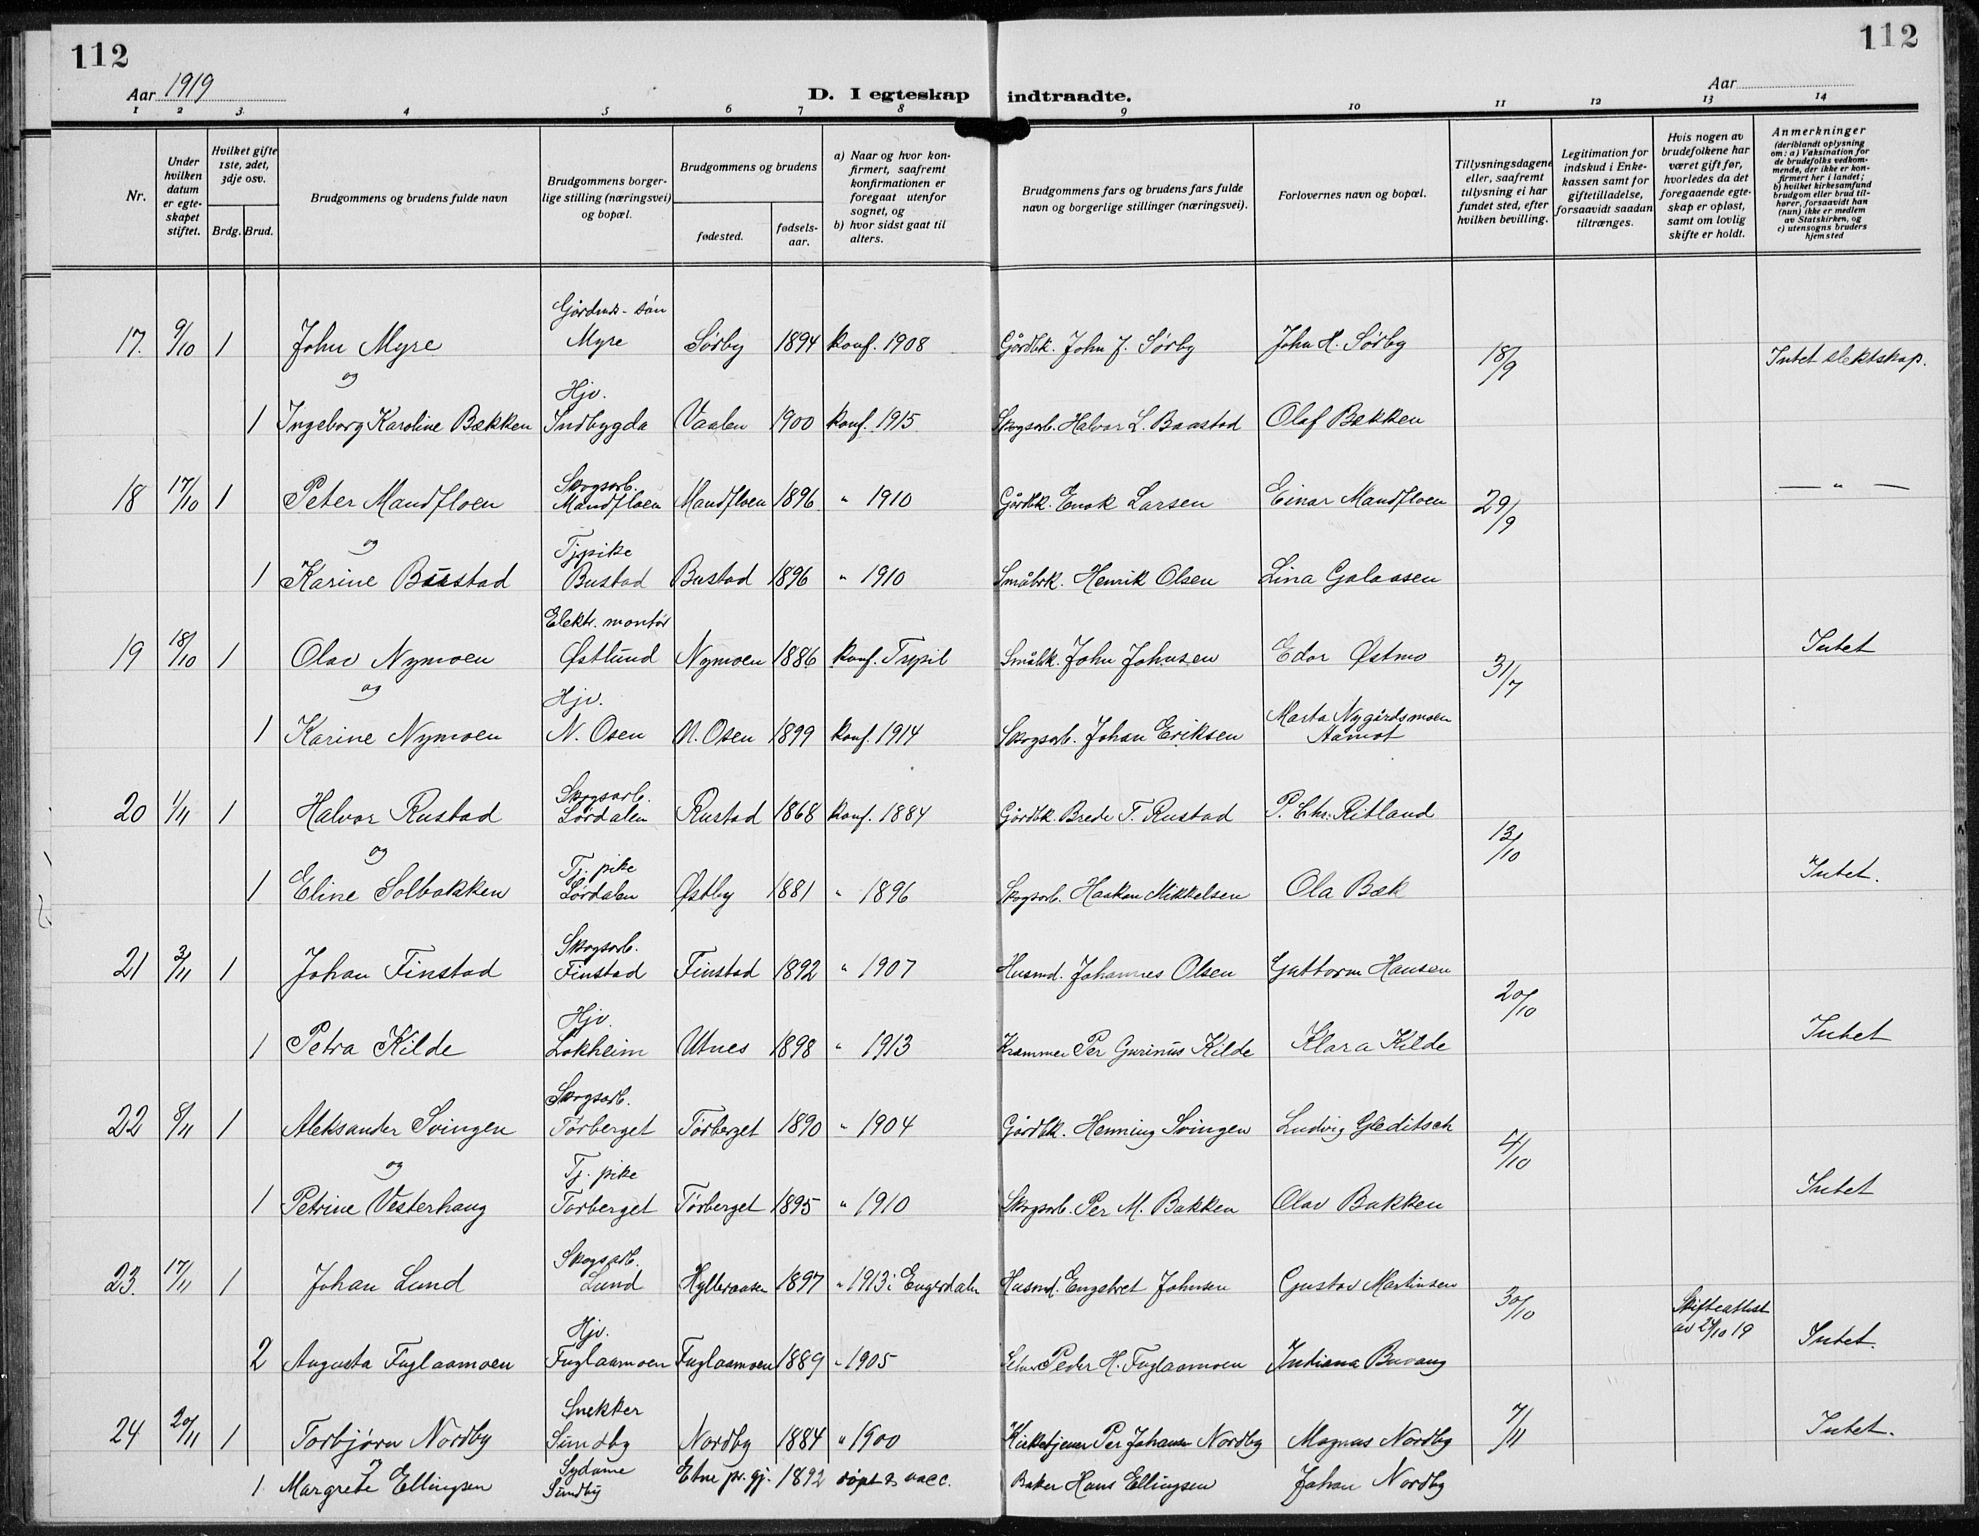 112
112
Aar 1919
D. I egteskap indtraadte.
Aar
1 2 3 4 5 6 7 8 9 10 11 12 13 14
Nr.
Under hvilken datum er egteskapet stiftet.
Hvilket gifte 1ste, 2det, 3dje osv.
Brdg. Brud.
Brudgommens og brudens fulde navn
Brudgommens borgerlige stilling (næringsvei) og bopæl.
Brudgommens og brudens
fødested.
fødselsaar.
a) Naar og hvor konfirmert, saafremt konfirmationen er foregaat utenfor sognet, og
b) hvor sidst gaat til alters.
Brudgommens fars og brudens fars fulde navn og borgerlige stillinger (næringsvei).
Forlovernes navn og bopæl.
Tillysningsdagene eller, saafremt tillysning ei har fundet sted, efter hvilken bevilling.
Legitimation for indskud i Enkekassen samt for giftetilladelse, forsaavidt saadan tiltrænges.
Hvis nogen av brudefolkene har været gift før, hvorledes da det foregaaende egteskap er opløst, samt om lovlig skifte er holdt.
Anmerkninger (deriblandt oplysning om: a) Vaksination for de brudefolks vedkommende, der ikke er konfirmert her i landet; b) hvilket kirkesamfund brudgom eller brud tilhører, forsaavidt han (hun) ikke er medlem av Statskirken, og c) utensogns bruders hjemsted
Gårdmds-søn
17. 9/10 1 John Myre Myre Sørby 1894 konf. 1908 Gårdbk. John J. Sørby John H. Sørby 18/9 Intet slektskap.
og Hjv.
1 Ingeborg Karoline Bækken Indbygda Vaalen 1900 konf. 1915 Skogsarb. Halvor L. Baastad Olaf Bækken
Skogsarb.
18 17/10 1 Peter Mandfloen Mandfloen Mandfloen 1896 " 1910 Gårdbk. Enok Larsen Einar Mandfloen 29/9 — " —
og Tj.pike
1 Karine Bustad Bustad Bustad 1896 " 1910 Småbrk. Henrik Olsen Lina Galaasen
Elektr. montør
19 18/10 1 Olav Nymoen Østlund Nymoen 1886 konf. Trysil Småbk. John Johnsen Edor Østmo 31/7 Intet
og Hjv.
1 Karine Nymoen N. Osen N. Osen 1899 konf. 1914 Skogsarb. Johan Eriksen Marta Nygårdsmoen Aamot
Skogsarb.
20 1/11 1 Halvor Rustad Sørdalen Rustad 1868 konf. 1884 Gårdbk. Brede T. Rustad P. Chr. Ritland 13/10
og Tj. pike
1 Eline Solbakken Sørdalen Østby 1881 " 1896 Skogsarb. Haakon Mikkelsen Ola Bæk Intet.
Skogsarb.
21 3/11 1 Johan Finstad Finstad Finstad 1892 " 1907 Husmd. Johannes Olsen Guttorm Hansen 20/10
Hjv.
1 Petra Kilde Lokheim Utnes 1898 " 1913 Kræmmer Per Gurinus Kilde Klara Kilde Intet
Skogsarb.
22 8/11 1 Aleksander Svingen Tørberget Tørberget 1890 " 1904 Gårdbk. Henning Svingen Ludvig Gleditsch 4/10
og Tj. pike
1 Petrine Vesterhaug Tørberget Tørberget 1895 " 1910 Skogsarb. Per M. Bakken Olav Bakken Intet
Skogsarb.
23. 17/11 1 Johan Lund Lund Hylleraasen 1897 " 1913 i Engerdalen Husmd. Engebret Johnsen Gustav Martinsen 30/10 Skifteattest
Hjv. av 24/10 19
2 Augusta Fuglaamoen Fuglaamoen Fuglaamoen 1889 " 1905 Peder H. Fuglaamoen Indiana Buvang Intet.
Snekker
24 20/11 1 Torbjørn Nordby Sundby Nordby 1884 " 1900 Kirketjener Per Johansen Nordby Magnus Nordby 7/11 Intet.
og Sydame
1 Margrete Ellingsen Sundby Etne pr. gj. 1892 døpt & vacc. Baker Hans Ellingsen Johan Nordby